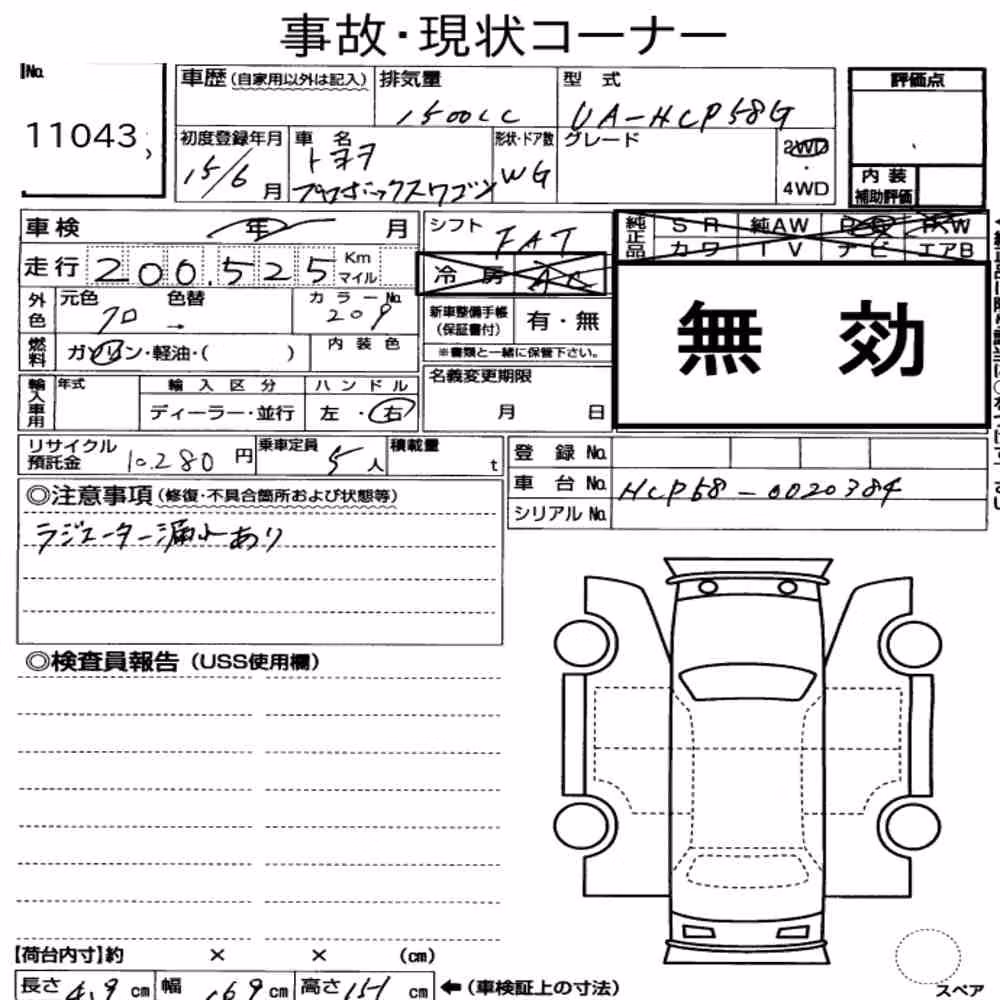 事故・現状コーナー
No.
11043
車歴(自家用以外は記入) 排気量 型式 評価点
1500cc UA-HCP58G
初度登録年月 車名 形状・ドア数 グレード 2WD
・
4WD
15/6 月 トヨタ プロボックスワゴン WG
内装
補助評価
車検 年 月 シフト FAT
純正品 SR 純AW PS PW
カワ TV ナビ エアB
走行 200,525 Km マイル
冷房 AC
外色 元色 色替 カラーNo.
クロ → 209
新車整備手帳
(保証書付) 有・無
無効
燃料 ガソリン・軽油・( ) 内装色
※書類と一緒に保管下さい。
輸入車用 年式 輸入区分 ハンドル
ディーラー・並行 左・右
名義変更期限
月 日
リサイクル
預託金 10,280 円 乗車定員 5人 積載量 t
登録No.
車台No. HCP58-0020384
シリアルNo.
◎注意事項(修復・不具合箇所および状態等)
ラジエーター漏れあり
◎検査員報告(USS使用欄)
【荷台内寸】約 × × (cm)
長さ 419 cm 幅 169 cm 高さ 151 cm ←(車検証上の寸法)
スペア